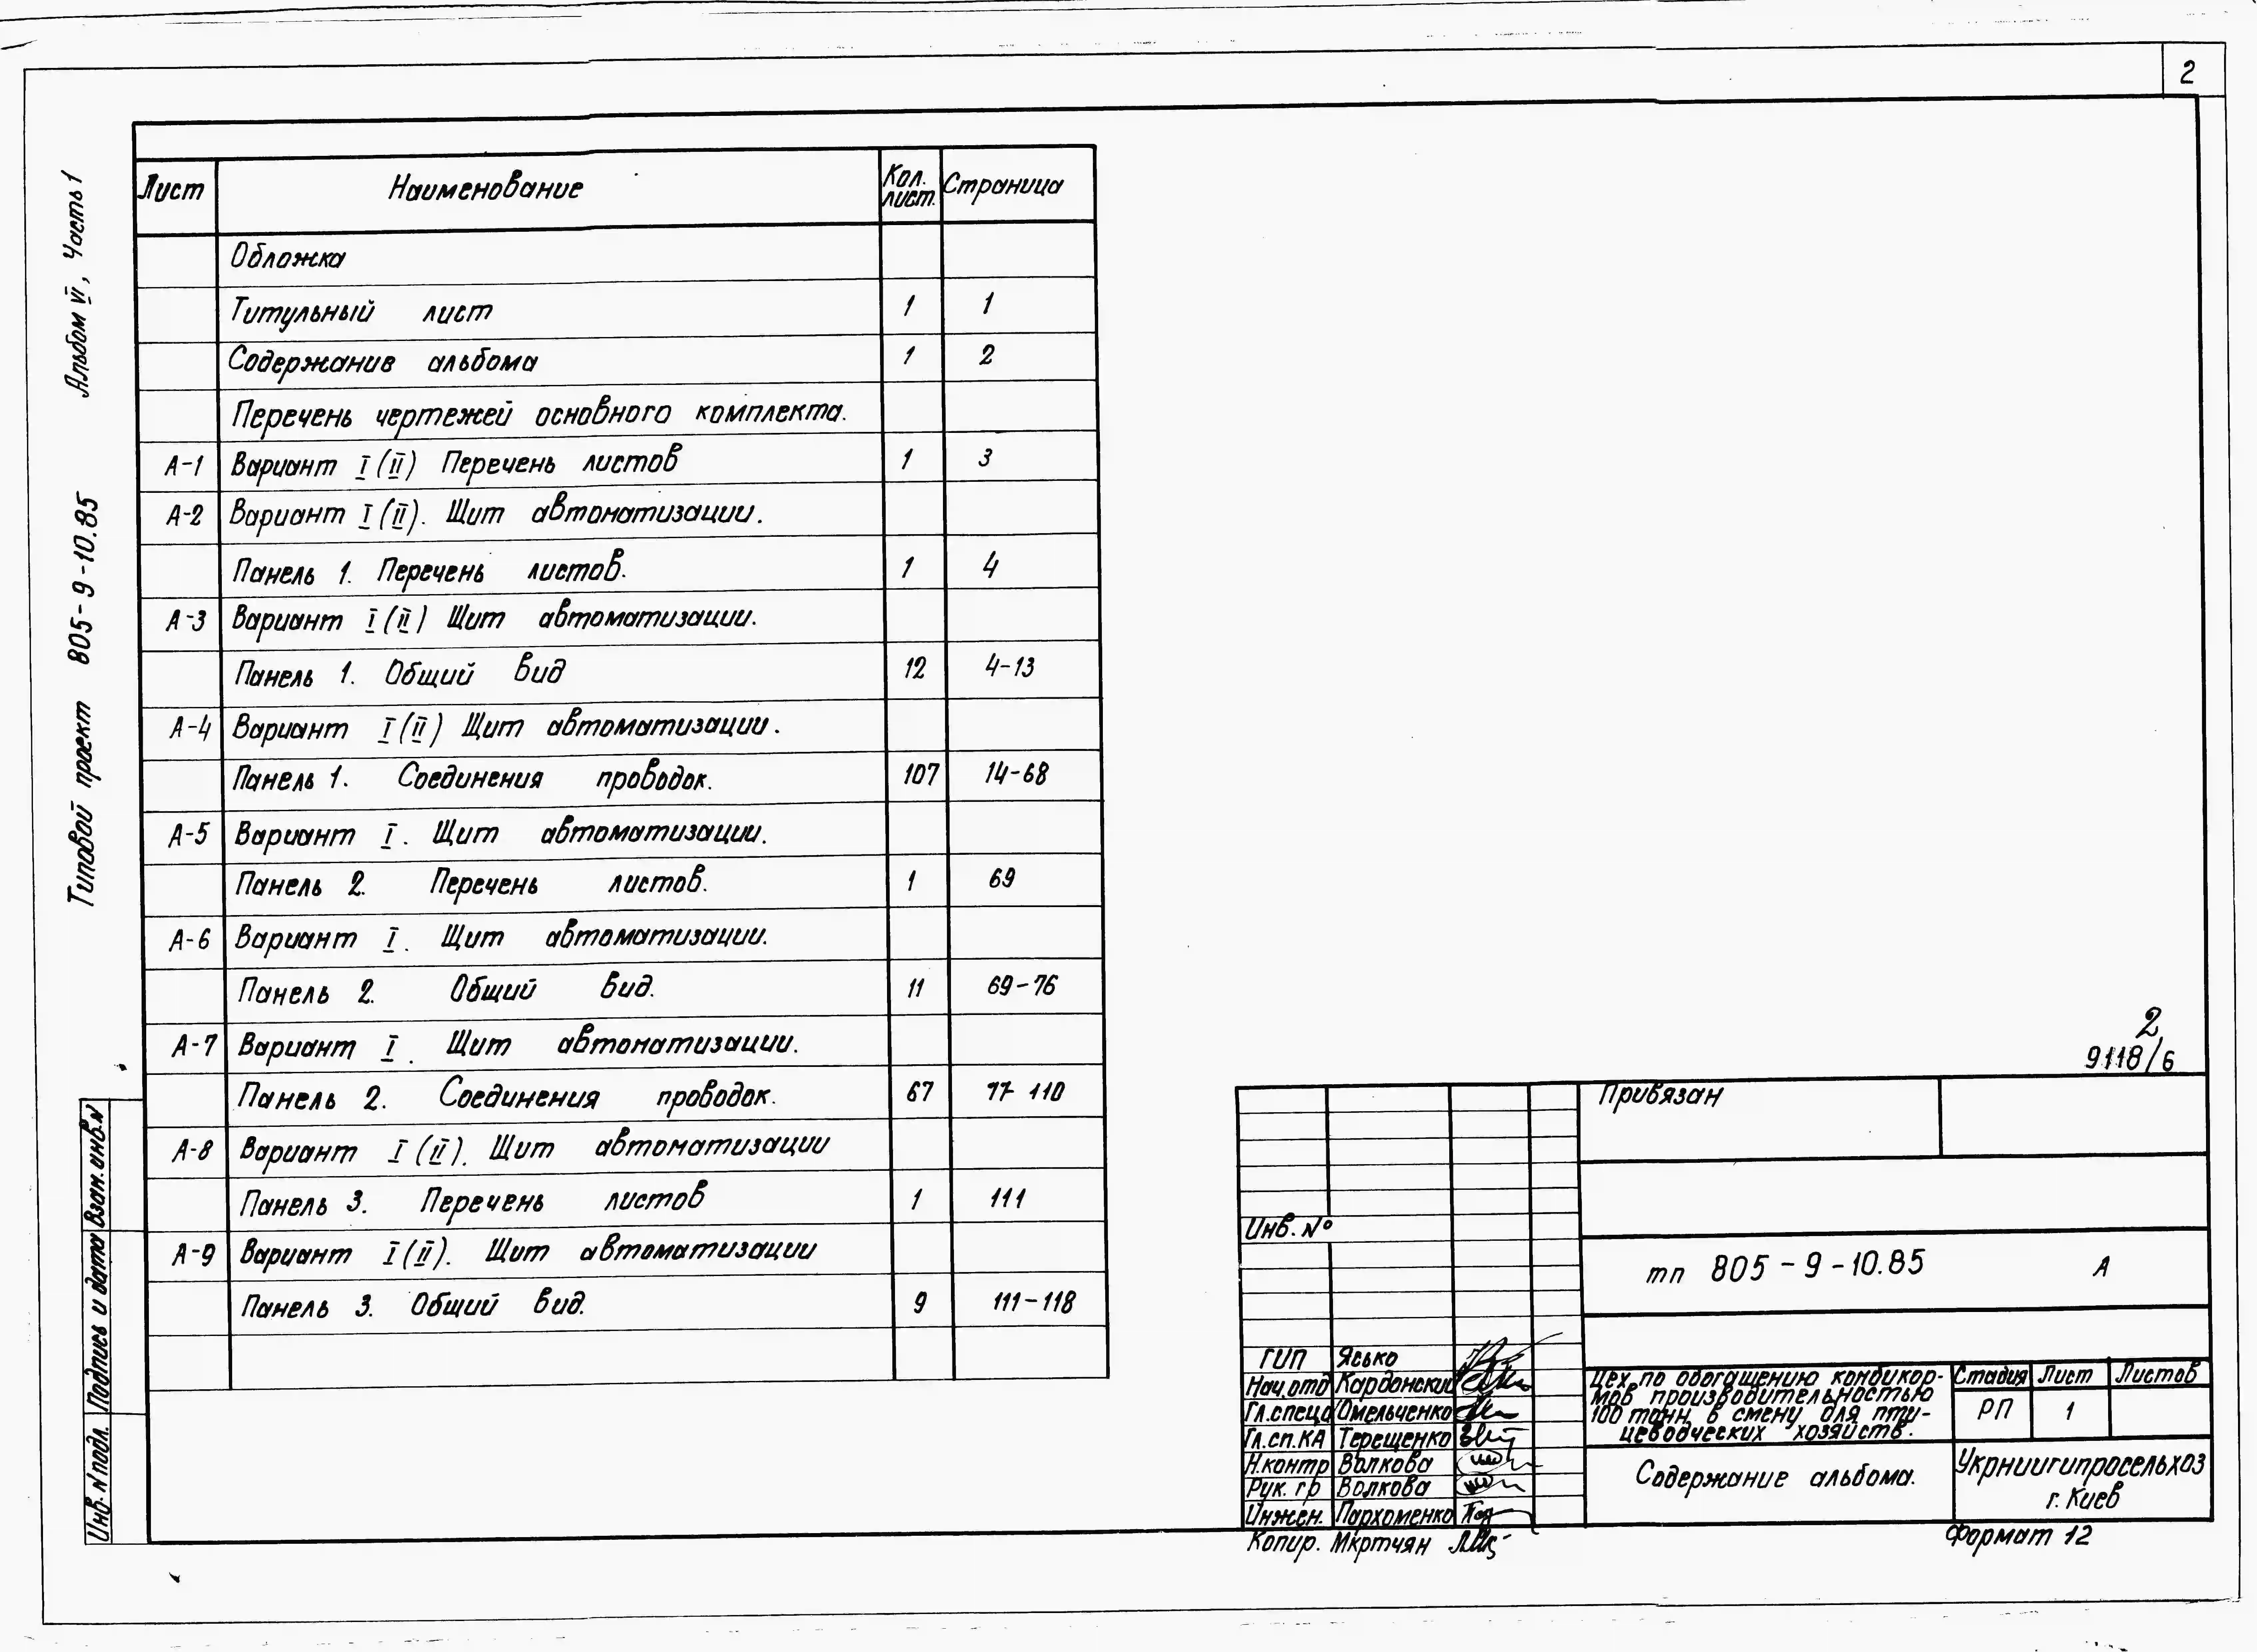 2
Альбом VI, Часть 1
Типовой проект 805-9-10.85
Лист Наименование Кол. лист. Страница
Обложка
Титульный лист 1 1
Содержание альбома 1 2
Перечень чертежей основного комплекта.
А-1 Вариант I (II) Перечень листов 1 3
А-2 Вариант I (II). Щит автоматизации.
Панель 1. Перечень листов. 1 4
А-3 Вариант I (II) Щит автоматизации.
Панель 1. Общий вид 12 4-13
А-4 Вариант I (II) Щит автоматизации.
Панель 1. Соединения проводок. 107 14-68
А-5 Вариант I. Щит автоматизации.
Панель 2. Перечень листов. 1 69
А-6 Вариант I. Щит автоматизации.
Панель 2. Общий вид. 11 69-76
А-7 Вариант I. Щит автоматизации.
Панель 2. Соединения проводок. 67 77-110
А-8 Вариант I (II). Щит автоматизации
Панель 3. Перечень листов 1 111
А-9 Вариант I (II). Щит автоматизации
Панель 3. Общий вид. 9 111-118
Взам. инв. N
Подпись и дата
Инв. N подл.
2
9118/6
Привязан
Инв. №
тп 805-9-10.85 А
ГИП Ясько
Нач. отд Кардонский
Гл. спец Омельченко
Гл. сп. КА Терещенко
Н. контр Волкова
Рук. гр Волкова
Инжен. Пархоменко
Копир. Мкртчян
Цех по обогащению комбикор-
мов производительностью
100 тонн в смену для пти-
цеводческих хозяйств.
Стадия Лист Листов
РП 1
Содержание альбома.
Укрниигипросельхоз
г. Киев
Формат 12